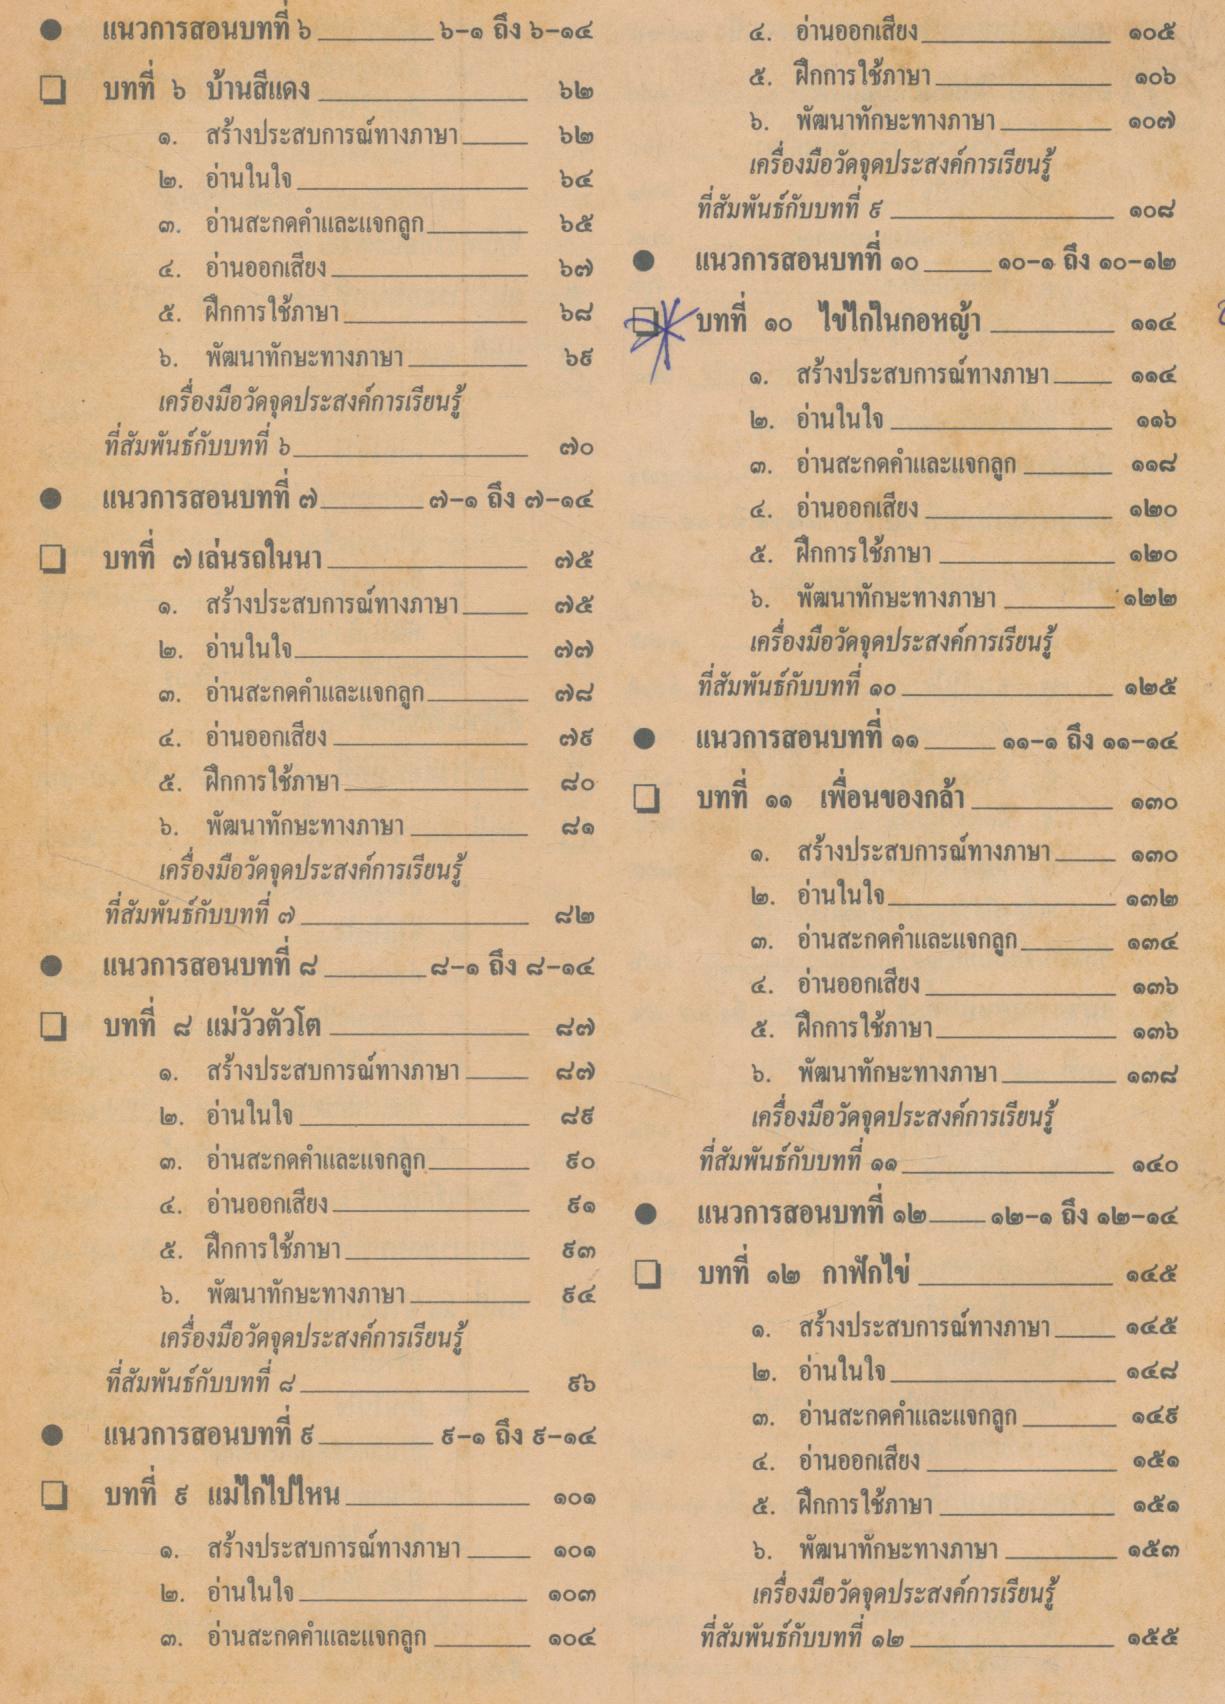 ● แนวการสอนบทที่ ๖ ________ ๖-๑ ถึง ๖-๑๔
❑ บทที่ ๖ บ้านสีแดง ________ ๖๒
๑. สร้างประสบการณ์ทางภาษา ________ ๖๒
๒. อ่านในใจ ________ ๖๔
๓. อ่านสะกดคำและแจกลูก ________ ๖๕
๔. อ่านออกเสียง ________ ๖๗
๕. ฝึกการใช้ภาษา ________ ๖๘
๖. พัฒนาทักษะทางภาษา ________ ๖๙
เครื่องมือวัดจุดประสงค์การเรียนรู้
ที่สัมพันธ์กับบทที่ ๖ ________ ๗๐
● แนวการสอนบทที่ ๗ ________ ๗-๑ ถึง ๗-๑๔
❑ บทที่ ๗ เล่นรถในนา ________ ๗๕
๑. สร้างประสบการณ์ทางภาษา ________ ๗๕
๒. อ่านในใจ ________ ๗๗
๓. อ่านสะกดคำและแจกลูก ________ ๗๘
๔. อ่านออกเสียง ________ ๗๙
๕. ฝึกการใช้ภาษา ________ ๘๐
๖. พัฒนาทักษะทางภาษา ________ ๘๑
เครื่องมือวัดจุดประสงค์การเรียนรู้
ที่สัมพันธ์กับบทที่ ๗ ________ ๘๒
● แนวการสอนบทที่ ๘ ________ ๘-๑ ถึง ๘-๑๔
❑ บทที่ ๘ แม่วัวตัวโต ________ ๘๗
๑. สร้างประสบการณ์ทางภาษา ________ ๘๗
๒. อ่านในใจ ________ ๘๙
๓. อ่านสะกดคำและแจกลูก ________ ๙๐
๔. อ่านออกเสียง ________ ๙๑
๕. ฝึกการใช้ภาษา ________ ๙๓
๖. พัฒนาทักษะทางภาษา ________ ๙๔
เครื่องมือวัดจุดประสงค์การเรียนรู้
ที่สัมพันธ์กับบทที่ ๘ ________ ๙๖
● แนวการสอนบทที่ ๙ ________ ๙-๑ ถึง ๙-๑๔
❑ บทที่ ๙ แม่ไก่ไปไหน ________ ๑๐๑
๑. สร้างประสบการณ์ทางภาษา ________ ๑๐๑
๒. อ่านในใจ ________ ๑๐๓
๓. อ่านสะกดคำและแจกลูก ________ ๑๐๔
๔. อ่านออกเสียง ________ ๑๐๕
๕. ฝึกการใช้ภาษา ________ ๑๐๖
๖. พัฒนาทักษะทางภาษา ________ ๑๐๗
เครื่องมือวัดจุดประสงค์การเรียนรู้
ที่สัมพันธ์กับบทที่ ๙ ________ ๑๐๘
● แนวการสอนบทที่ ๑๐ ________ ๑๐-๑ ถึง ๑๐-๑๒
❑ บทที่ ๑๐ ไข่ไก่ในกอหญ้า ________ ๑๑๔
๑. สร้างประสบการณ์ทางภาษา ________ ๑๑๔
๒. อ่านในใจ ________ ๑๑๖
๓. อ่านสะกดคำและแจกลูก ________ ๑๑๘
๔. อ่านออกเสียง ________ ๑๒๐
๕. ฝึกการใช้ภาษา ________ ๑๒๐
๖. พัฒนาทักษะทางภาษา ________ ๑๒๒
เครื่องมือวัดจุดประสงค์การเรียนรู้
ที่สัมพันธ์กับบทที่ ๑๐ ________ ๑๒๕
● แนวการสอนบทที่ ๑๑ ________ ๑๑-๑ ถึง ๑๑-๑๔
❑ บทที่ ๑๑ เพื่อนของกล้า ________ ๑๓๐
๑. สร้างประสบการณ์ทางภาษา ________ ๑๓๐
๒. อ่านในใจ ________ ๑๓๒
๓. อ่านสะกดคำและแจกลูก ________ ๑๓๔
๔. อ่านออกเสียง ________ ๑๓๖
๕. ฝึกการใช้ภาษา ________ ๑๓๖
๖. พัฒนาทักษะทางภาษา ________ ๑๓๘
เครื่องมือวัดจุดประสงค์การเรียนรู้
ที่สัมพันธ์กับบทที่ ๑๑ ________ ๑๔๐
● แนวการสอนบทที่ ๑๒ ________ ๑๒-๑ ถึง ๑๒-๑๔
❑ บทที่ ๑๒ กาฟักไข่ ________ ๑๔๕
๑. สร้างประสบการณ์ทางภาษา ________ ๑๔๕
๒. อ่านในใจ ________ ๑๔๘
๓. อ่านสะกดคำและแจกลูก ________ ๑๔๙
๔. อ่านออกเสียง ________ ๑๕๑
๕. ฝึกการใช้ภาษา ________ ๑๕๑
๖. พัฒนาทักษะทางภาษา ________ ๑๕๓
เครื่องมือวัดจุดประสงค์การเรียนรู้
ที่สัมพันธ์กับบทที่ ๑๒ ________ ๑๕๕